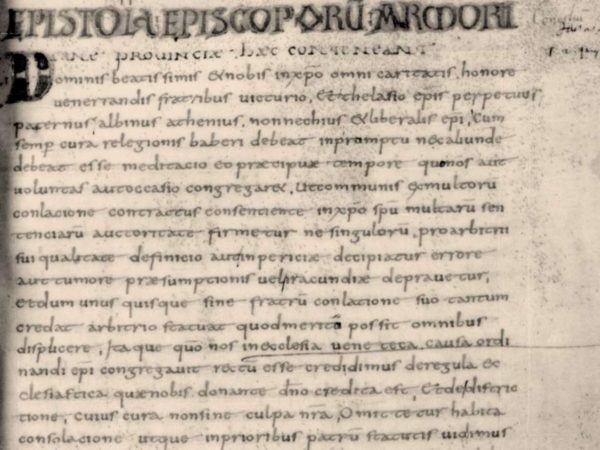 EPISTOLA EPISCOPORŪ ARMORI
CANE PROVINCIÆ HÆC CONTENEANT
Dominis beatissimis & nobis inxp̄o omni caritatis, honore
uenerrandis fratribus uicturio, & thelasio epis perpetuus
paternus, albinus athenius, nonnechius & liberalis epi, Cum
semp cura relegionis haberi debeat inpromptu nec aliunde
debeat esse meditacio eo præcipuæ tempore quo nos aut
uoluntas aut occasio congregarex, Ut communis & multorū
conlacione contractus consentiente inxp̄o sp̄u multarū sen
tenciarū auctoritate firmetur ne singulorū, pro arbitrii
sui qualitate definicio aut inpericiæ decipiatur errore
aut tumore præsumptionis uel iracundiæ deprauetur,
& dum unus quisque sine fratrū conlacione suo tantum
credat arbitrio statuat quod merito possit omnibus
displicere, Itaque quō nos in ecclesia uene teca, causa ordi
nandi ep̄i congregauit rectū esse credidimus de regula ec
clesiastica quæ nobis donante dn̄o credita est, & de districtio
tione, cuius cura non sine culpa nr̄a, omittetur habita
consolacione utque in prioribus patrū statutis uidimus